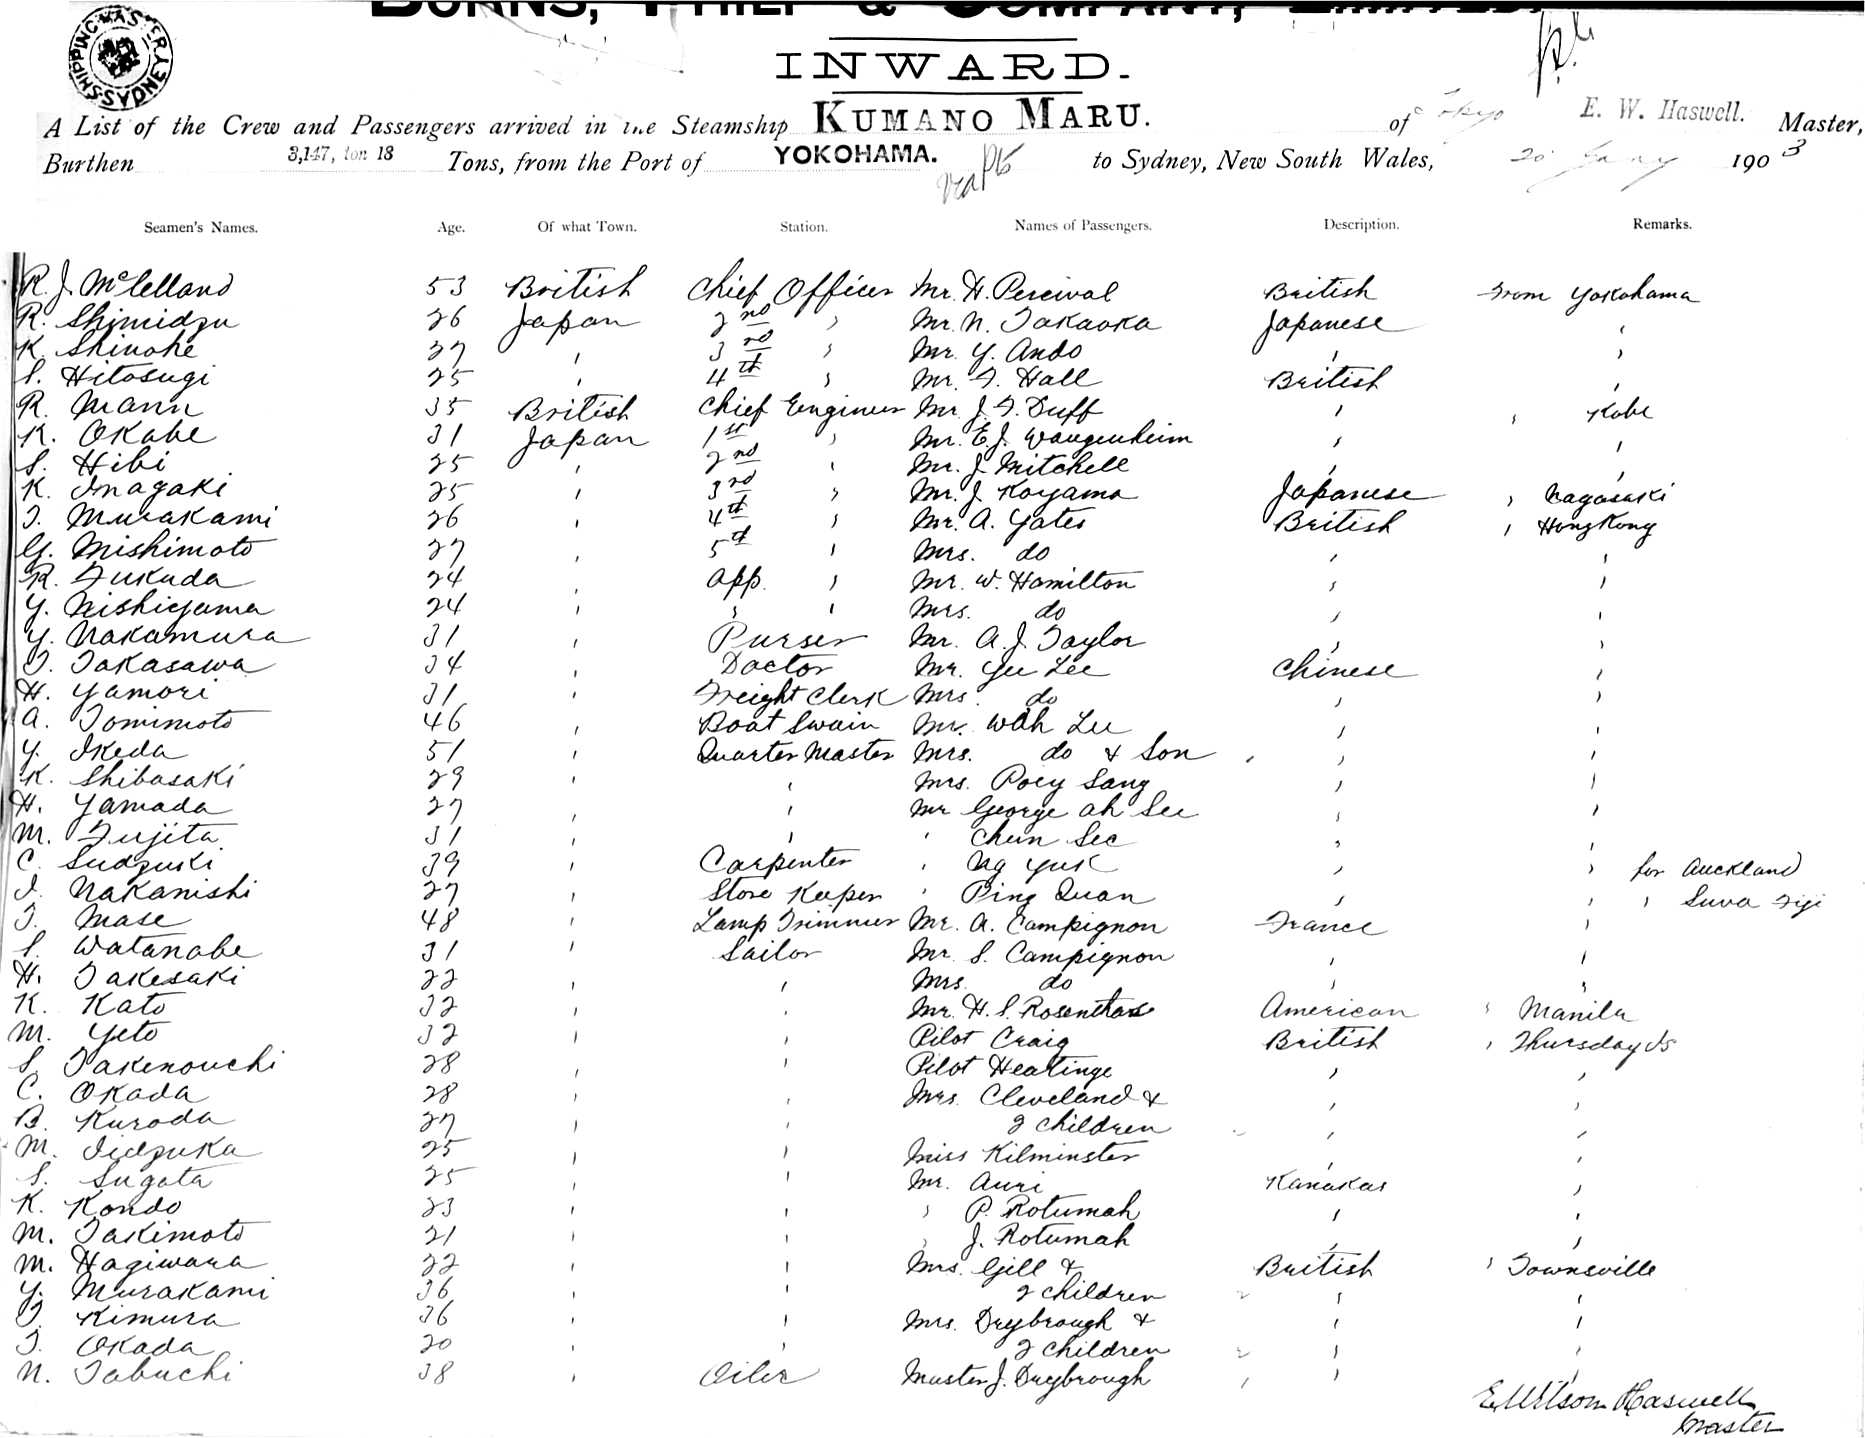 BURNS, PHILP & COMPANY, LIMITED.
SHIPPING MASTER SYDNEY
INWARD.
A List of the Crew and Passengers arrived in the Steamship KUMANO MARU. of Tokyo E. W. Haswell. Master,
Burthen 3,147, ton 18 Tons, from the Port of YOKOHAMA. to Sydney, New South Wales, 20 Jany 1903
Seamen's Names. Age. Of what Town. Station. Names of Passengers. Description. Remarks.
R. J. McLelland 53 British Chief Officer Mr. H. Percival British From Yokohama
R. Shimidzu 26 Japan 2nd " Mr. N. Takaoka Japanese "
K. Shinohe 27 " 3rd " Mr. Y. Ando " "
S. Hitosugi 25 " 4th " Mr. F. Hall British "
R. Mann 35 British Chief Engineer Mr. J. F. Duff " " Kobe
K. Okabe 31 Japan 1st " Mr. E. J. Wangenheim " "
S. Hibi 25 " 2nd " Mr. J. Mitchell " "
K. Inagaki 25 " 3rd " Mr. J. Koyama Japanese " Nagasaki
T. Murakami 26 " 4th " Mr. A. Yates British " HongKong
G. Mishimoto 27 " 5th " Mrs. do " "
R. Fukuda 24 " App. " Mr. W. Hamilton " "
Y. Nishiyama 24 " " " Mrs. do " "
Y. Nakamura 31 " Purser Mr. A. J. Taylor " "
T. Takasawa 34 " Doctor Mr. Yee Lee Chinese "
H. Yamori 31 " Freight Clerk Mrs. do " "
A. Tomimoto 46 " Boat Swain Mr. Wah Lu " "
Y. Ikeda 51 " Quarter Master Mrs. do & Son " "
K. Shibasaki 29 " " Mrs. Poey Sang " "
H. Yamada 27 " " Mr George Ah See " "
M. Fujita 31 " " " Chun See " "
C. Sudzuki 39 " Carpenter " Ng Yuk " " for Auckland
I. Nakanishi 27 " Store Keeper " Ping Quan " " " Suva Fiji
T. Mase 48 " Lamp Trimmer Mr. A. Campignon France "
S. Watanabe 31 " Sailor Mr. S. Campignon " "
H. Takesaki 22 " " Mrs. do " "
K. Kato 32 " " Mr. H. S. Rosenthal American " Manila
M. Yeto 32 " " Pilot Craig British " Thursday Is
S. Takenouchi 28 " " Pilot Heatinge " "
C. Okada 28 " " Mrs. Cleveland & " "
B. Kuroda 27 " " 2 children " "
M. Iidzuka 25 " " Miss Kilminster " "
S. Sugata 25 " " Mr. Auri Kanakas "
K. Kondo 23 " " " P. Rotumah " "
M. Takimoto 21 " " " J. Rotumah " "
M. Hagiwara 22 " " Mrs. Gill & British " Townsville
Y. Murakami 36 " " 2 children " "
T. Kimura 36 " " Mrs. Drybrough & " "
T. Okada 20 " " 2 children " "
N. Tabuchi 38 " Oiler Master J. Drybrough " "
E. Wilson Haswell
Master